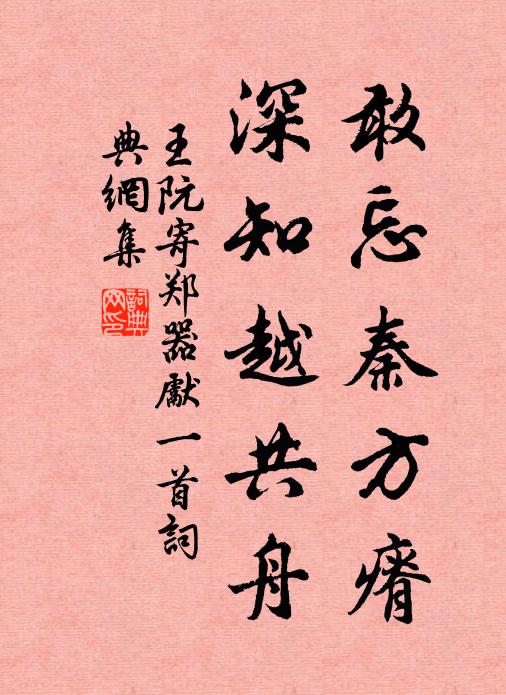 敢忘秦方瘠
深知越共舟
王阮寄郑器獻一首詞
典網集
詞典网印